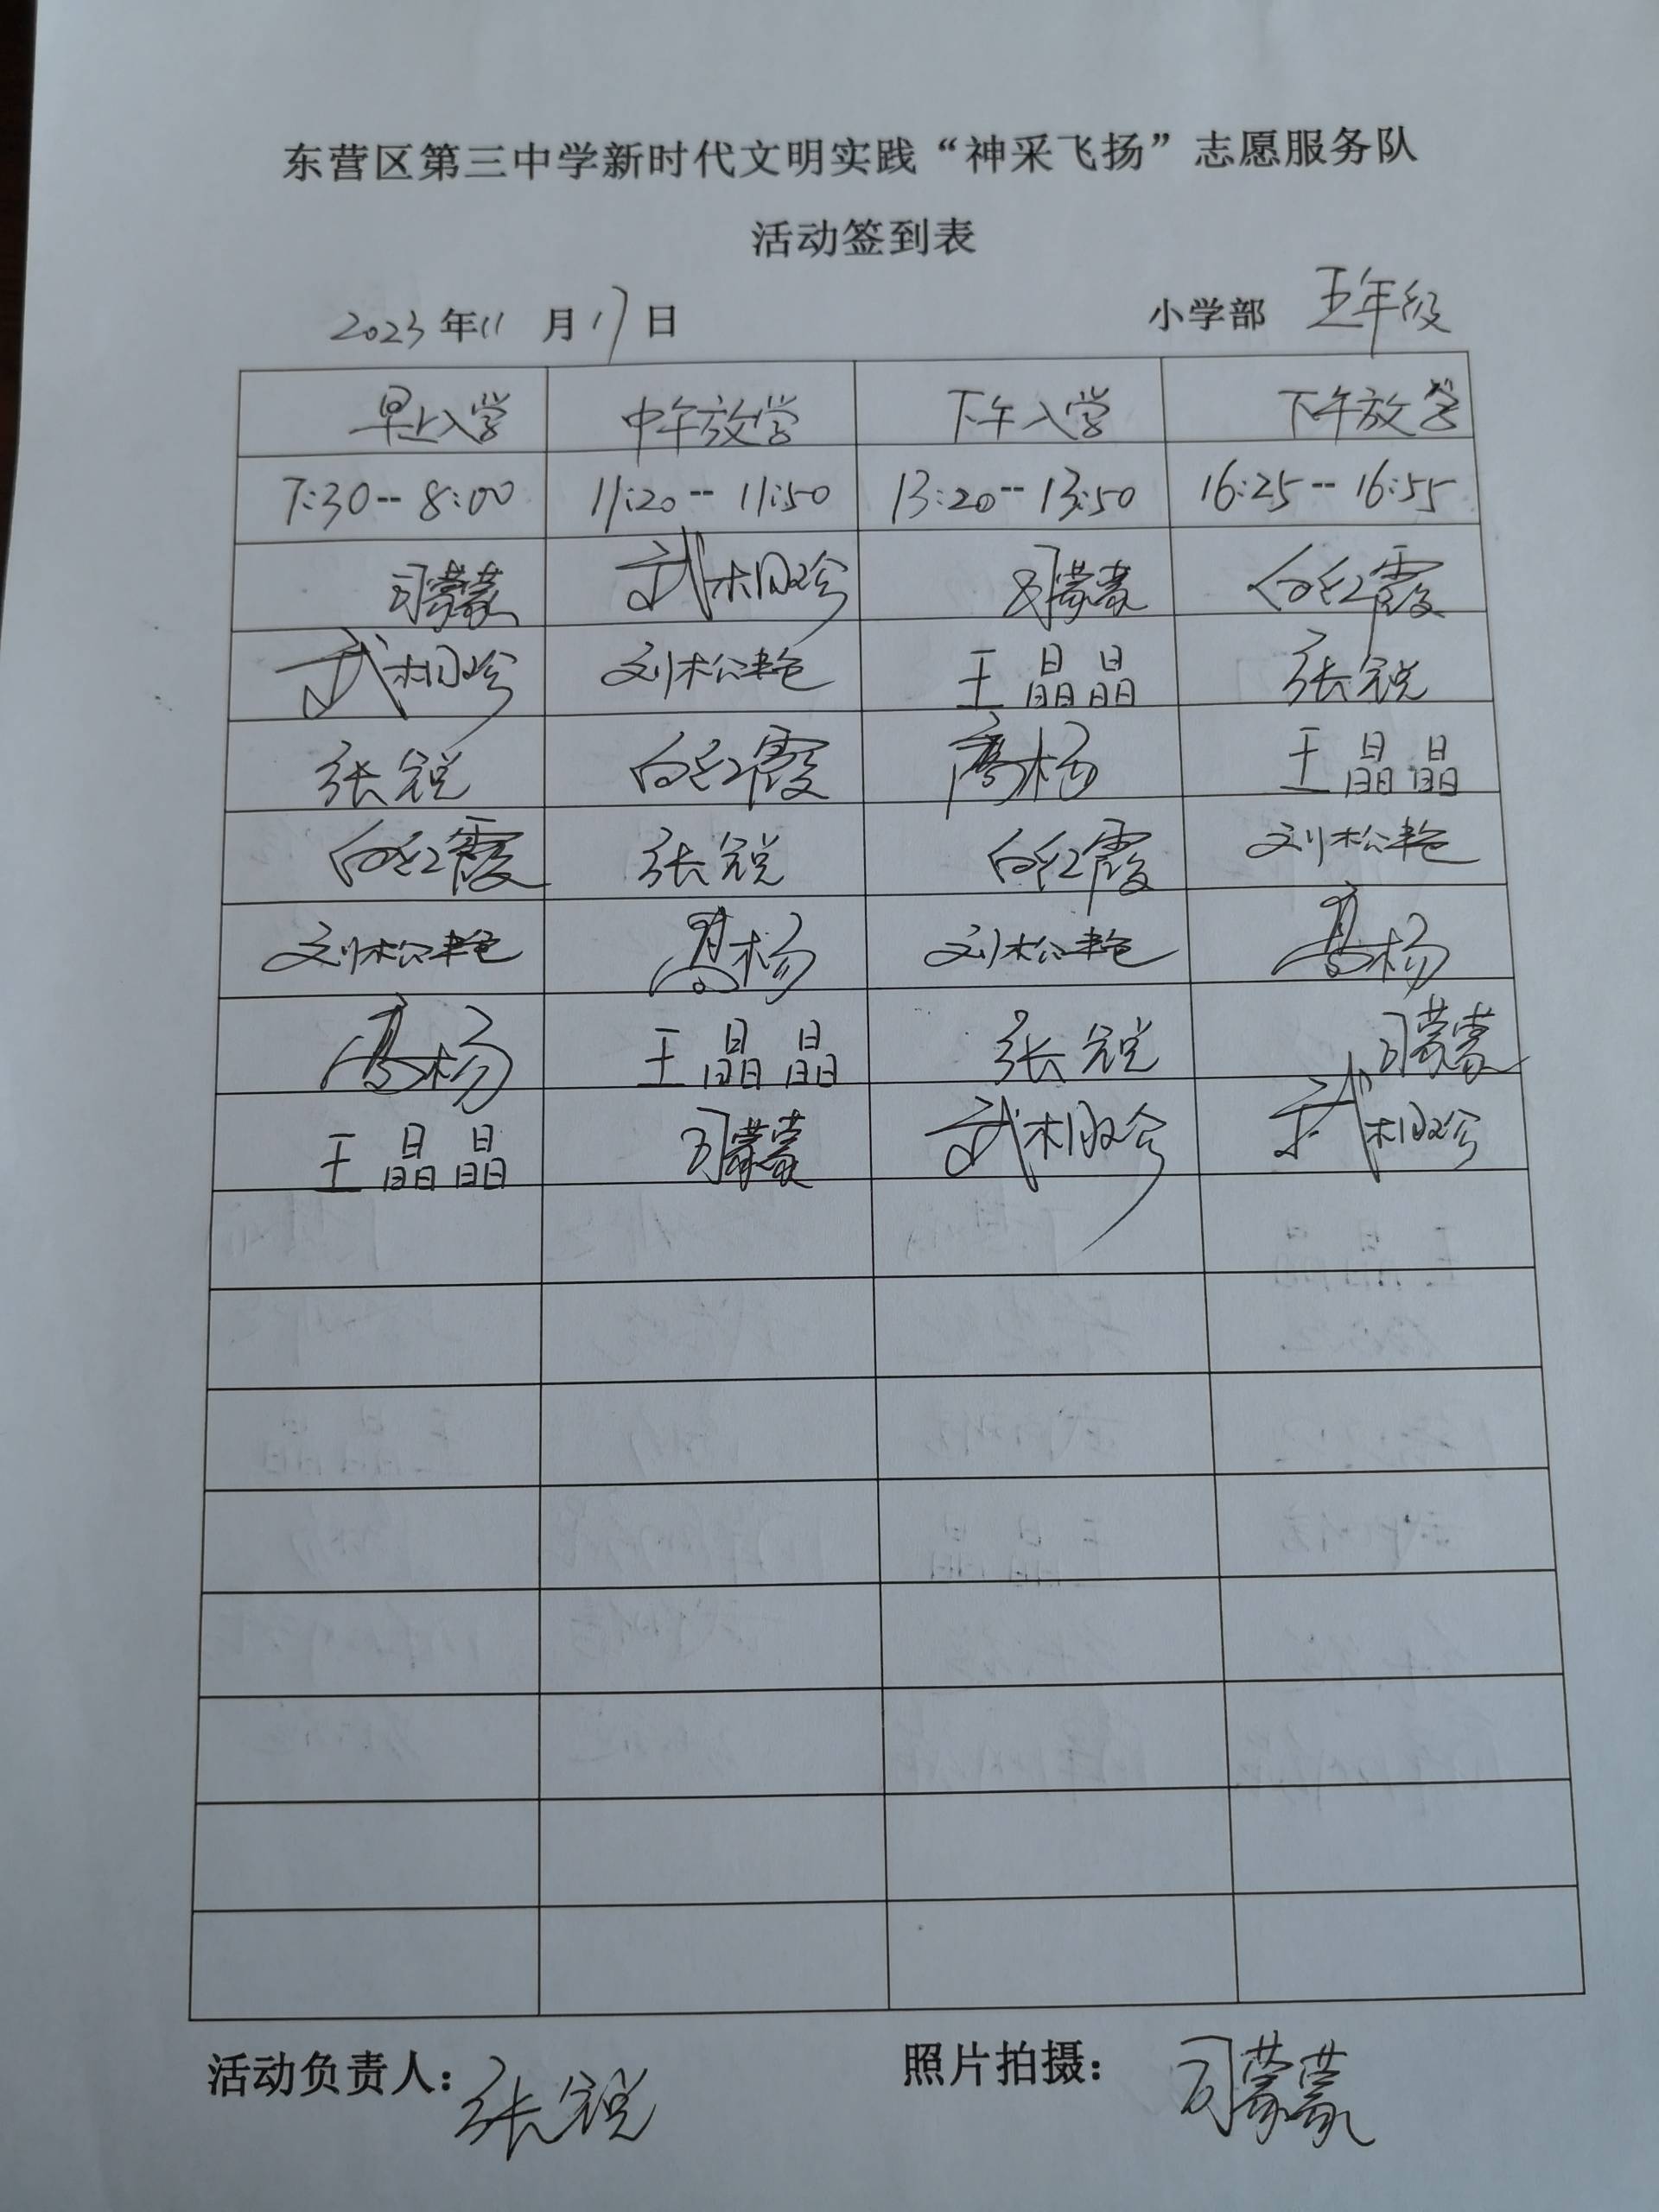 东营区第三中学新时代文明实践“神采飞扬”志愿服务队
活动签到表
2023年11月17日 小学部 五年级
早上入学 中午放学 下午入学 下午放学
7:30--8:00 11:20--11:50 13:20--13:50 16:25--16:55
司蒙蒙 武相珍 司蒙蒙 白红霞
武相珍 刘松艳 王晶晶 张锐
张锐 白红霞 高杨 王晶晶
白红霞 张锐 白红霞 刘松艳
刘松艳 高杨 刘松艳 高杨
高杨 王晶晶 张锐 司蒙蒙
王晶晶 司蒙蒙 武相珍 武相珍
活动负责人：张锐 照片拍摄：司蒙蒙